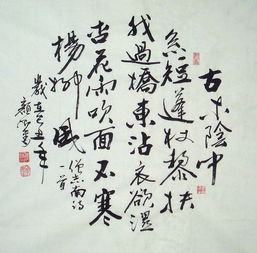 古木陰中
系短蓬杖黎扶
我過橋東沾衣欲濕
杏花雨吹面不寒
楊柳風
僧志南詩
一首